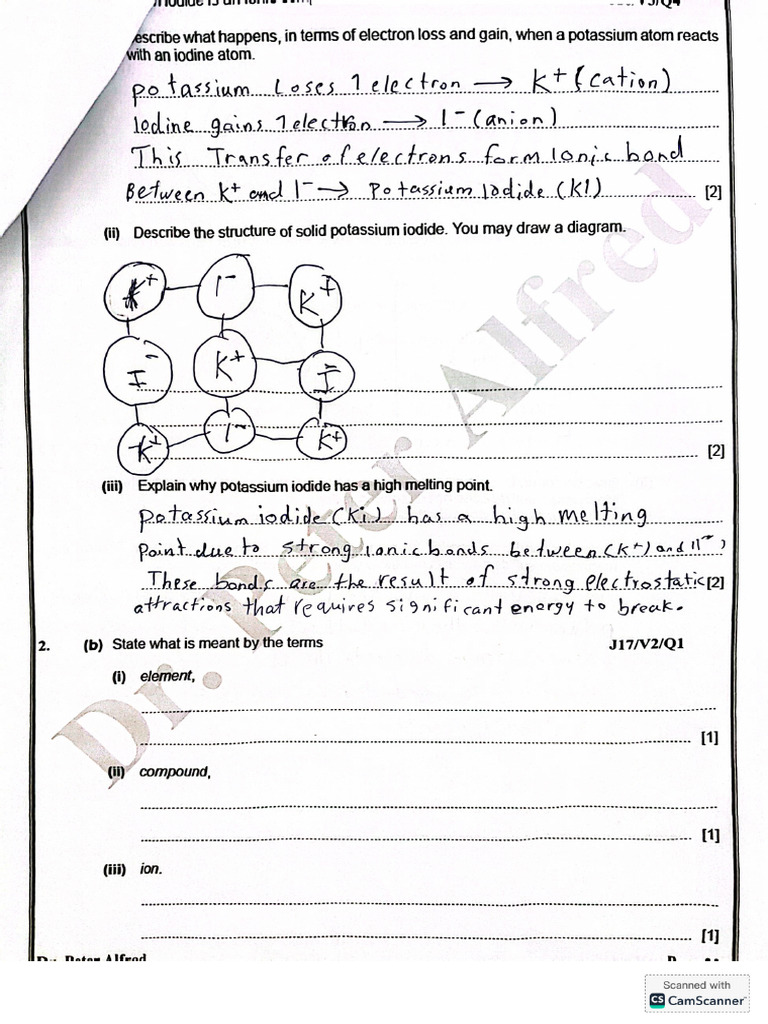 escribe what happens, in terms of electron loss and gain, when a potassium atom reacts
with an iodine atom.
potassium Loses 1 electron → K+ (cation)
Iodine gains 1 electron → I- (anion)
This Transfer of electrons form Ionic bond
Between K+ and I- → Potassium Iodide (KI) [2]
(ii) Describe the structure of solid potassium iodide. You may draw a diagram.
K+ I- K I
I- K+ I-
K+ I- K+
[2]
(iii) Explain why potassium iodide has a high melting point.
potassium iodide (Ki) has a high melting
Point due to strong ionic bonds between (K+) and (I-)
These bonds are the result of strong electrostatic [2]
attractions that requires significant energy to break.
2. (b) State what is meant by the terms J17/V2/Q1
(i) element,
[1]
(ii) compound,
[1]
(iii) ion.
[1]
Dr. Peter Alfred
Dr. Peter Alfred
Scanned with
CS CamScanner